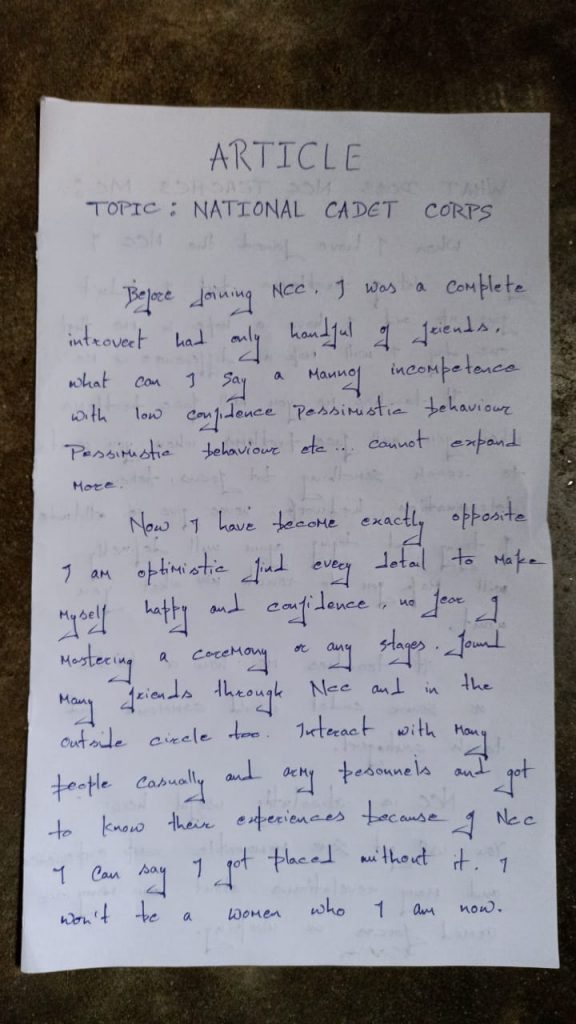 ARTICLE
TOPIC : NATIONAL CADET CORPS
Before joining NCC. I was a complete
introvert had only handful of friends.
what can I say a man of incompetence
with low confidence pessimistic behaviour
Pessimistic behaviour etc... cannot expand
more.
Now I have become exactly opposite
I am optimistic find every detail to make
myself happy and confidence, no fear of
mastering a ceremony or any stages. found
many friends through NCC and in the
outside circle too. Interact with many
people casually and army pesonnels and got
to know their experiences because of NCC
I can say I got placed without it. I
won't be a women who I am now.